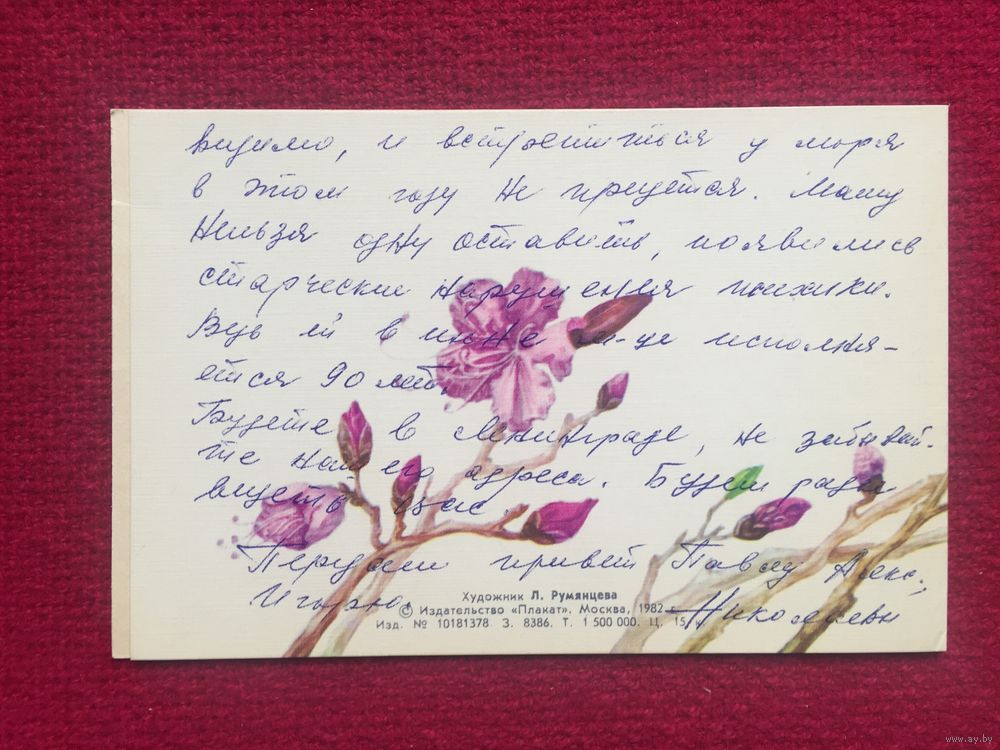 видимо, и встретиться у моря
в этом году не придется. Маму
нельзя одну оставить, появились
старческие нарушения психики.
Ведь ей в июне м-це исполня-
ется 90 лет.
Будете в Ленинграде, не забывай-
те нашего адреса. Будем рады
видеть вас.
Передаем привет Павлу Алекс.,
Игорю.
Николаевы
Художник Л. Румянцева
© Издательство «Плакат». Москва, 1982 г.
Изд. № 10181378. З. 8386. Т. 1 500 000. Ц. 15
www.ay.by